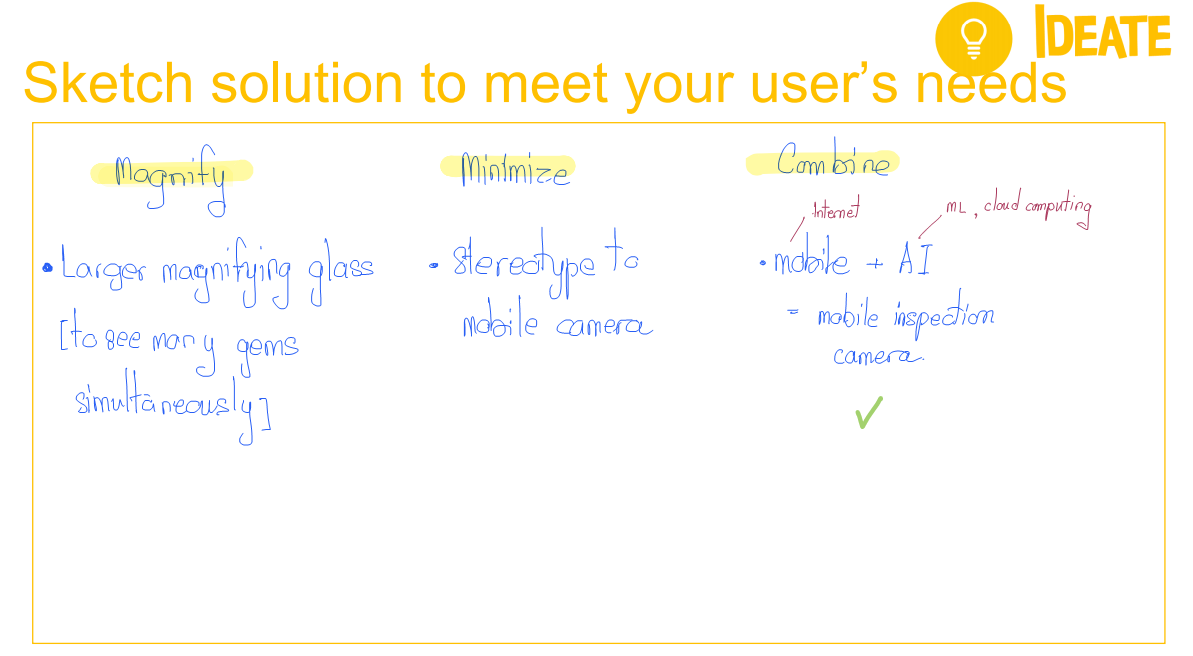 IDEATE
Sketch solution to meet your user's needs
Magnify
• Larger magnifying glass
[to see many gems
simultaneously]
Minimize
• stereotype to
mobile camera
Combine
Internet
ML, cloud computing
• mobile + AI
= mobile inspection
camera.